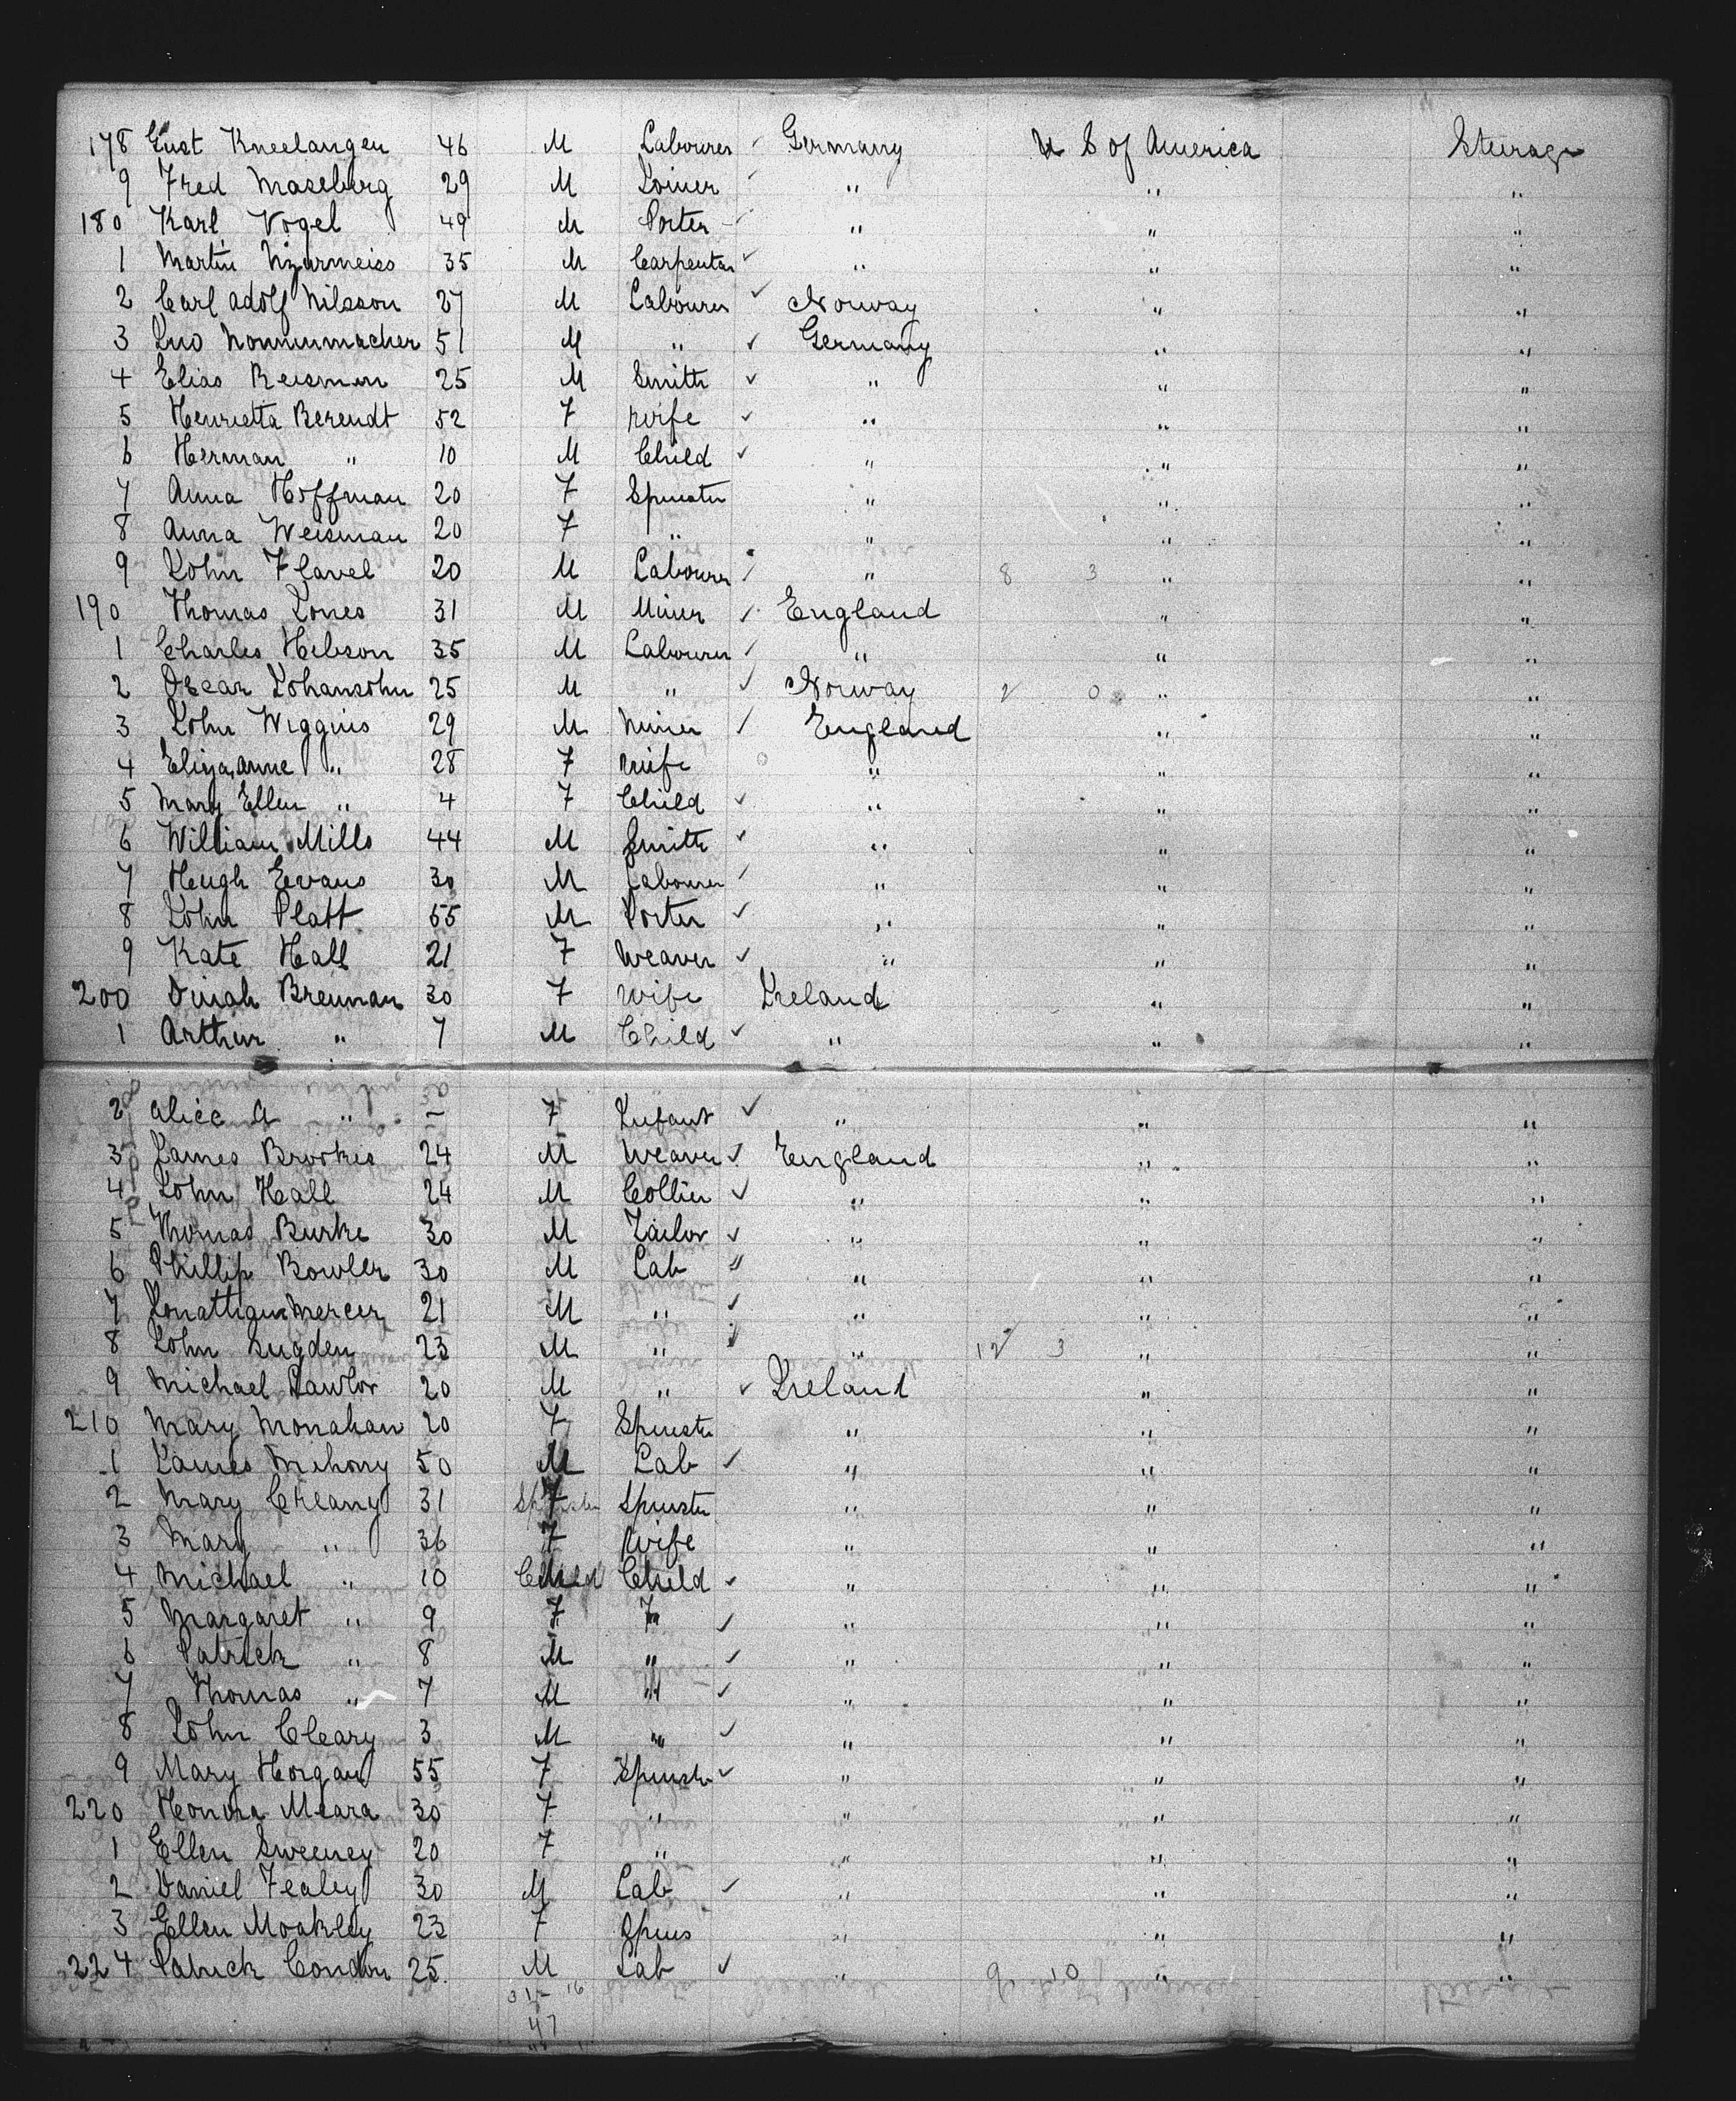 178 Gust Kneelangen 46 M Labourer Germany U S of America Steerage
9 Fred Maseberg 29 M Joiner " " "
180 Karl Vogel 49 M Porter " " "
1 Martin 35 M Carpenter " " "
2 Carl Adolf Nilsson 27 M Labourer Norway " "
3 Nonnenmacher 51 M " Germany " "
4 Elias Reisman 25 M Smith " " "
5 Henrietta Berendt 52 F Wife " " "
6 Herman " 10 M Child " " "
7 Anna Hoffman 20 F Spinster " " "
8 Anna Weisman 20 F " " " "
9 John Flavel 20 M Labourer " 8 3 " "
190 Thomas Jones 31 M Miner England " "
1 Charles Hibson 35 M Labourer " " "
2 Oscar Johansohn 25 M " Norway 2 0 " "
3 John Wiggins 29 M Miner England " "
4 Eliza Anne " 28 F Wife " " "
5 Mary Ellen " 4 F Child " " "
6 William Mills 44 M Smith " " "
7 Hugh Evans 30 M Labourer " " "
8 John Platt 55 M Porter " " "
9 Kate Hall 21 F Weaver " " "
200 Dinah Brennan 30 F Wife Ireland " "
1 Arthur " 7 M Child " " "
2 Alice A " – F Infant " " "
3 James Brookes 24 M Weaver England " "
4 John Hall 24 M Collier " " "
5 Thomas Burke 30 M Tailor " " "
6 Phillip Bowler 30 M Lab " " "
7 Jonathan Mercer 21 M " " " "
8 John Sugden 23 M " " 12 3 " "
9 Michael Lawlor 20 M " Ireland " "
210 Mary Monahan 20 F Spinster " " "
1 James Mehony 50 M Lab " " "
2 Mary Creany 31 F Spinster " " "
3 Mary " 36 F Wife " " "
4 Michael " 10 M Child " " "
5 Margaret " 9 F " " " "
6 Patrick " 8 M " " " "
7 Thomas " 7 M " " " "
8 John Cleary 3 M " " " "
9 Mary Horgan 55 F Spinster " " "
220 Honora Meara 30 F " " " "
1 Ellen Sweeney 20 F " " " "
2 Daniel Fealey 30 M Lab " " "
3 Ellen Moakley 23 F Spins " " "
224 Patrick Condon 25. M Lab " 9 10 " "
31 16
47